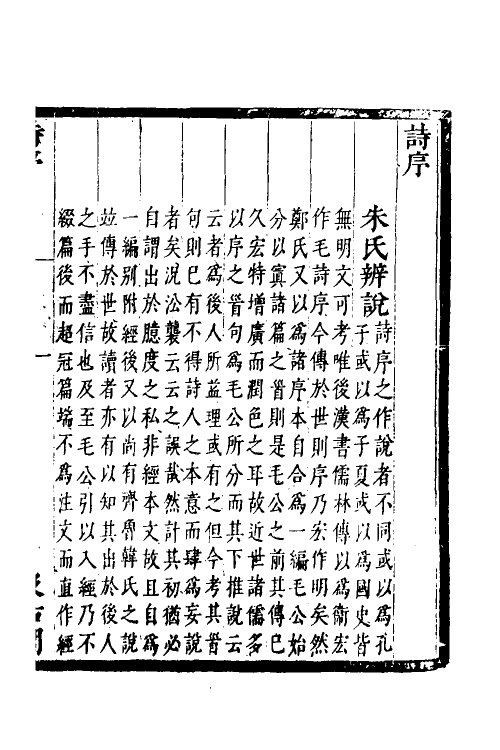 詩序
朱氏辨說
詩序之作說者不同或以爲孔
子或以爲子夏或以爲國史皆
無明文可考唯後漢書儒林傳以爲衛宏
作毛詩序今傳於世則序乃宏作明矣然
鄭氏又以爲諸序本自合爲一編毛公始
分以寘諸篇之首則是毛公之前其傳已
久宏特增廣而潤色之耳故近世諸儒多
以序之首句爲毛公所分而其下推說云
云者爲後人所益理或有之但今考其首
句則已有不得詩人之本意而肆爲妄說
者矣況沿襲云云之誤哉然計其初猶必
自謂出於臆度之私非經本文故且自爲
一編別附經後又以尚有齊魯韓氏之說
竝傳於世故讀者亦有以知其出於後人
之手不盡信也及至毛公引以入經乃不
綴篇後而超冠篇端不爲注文而直作經